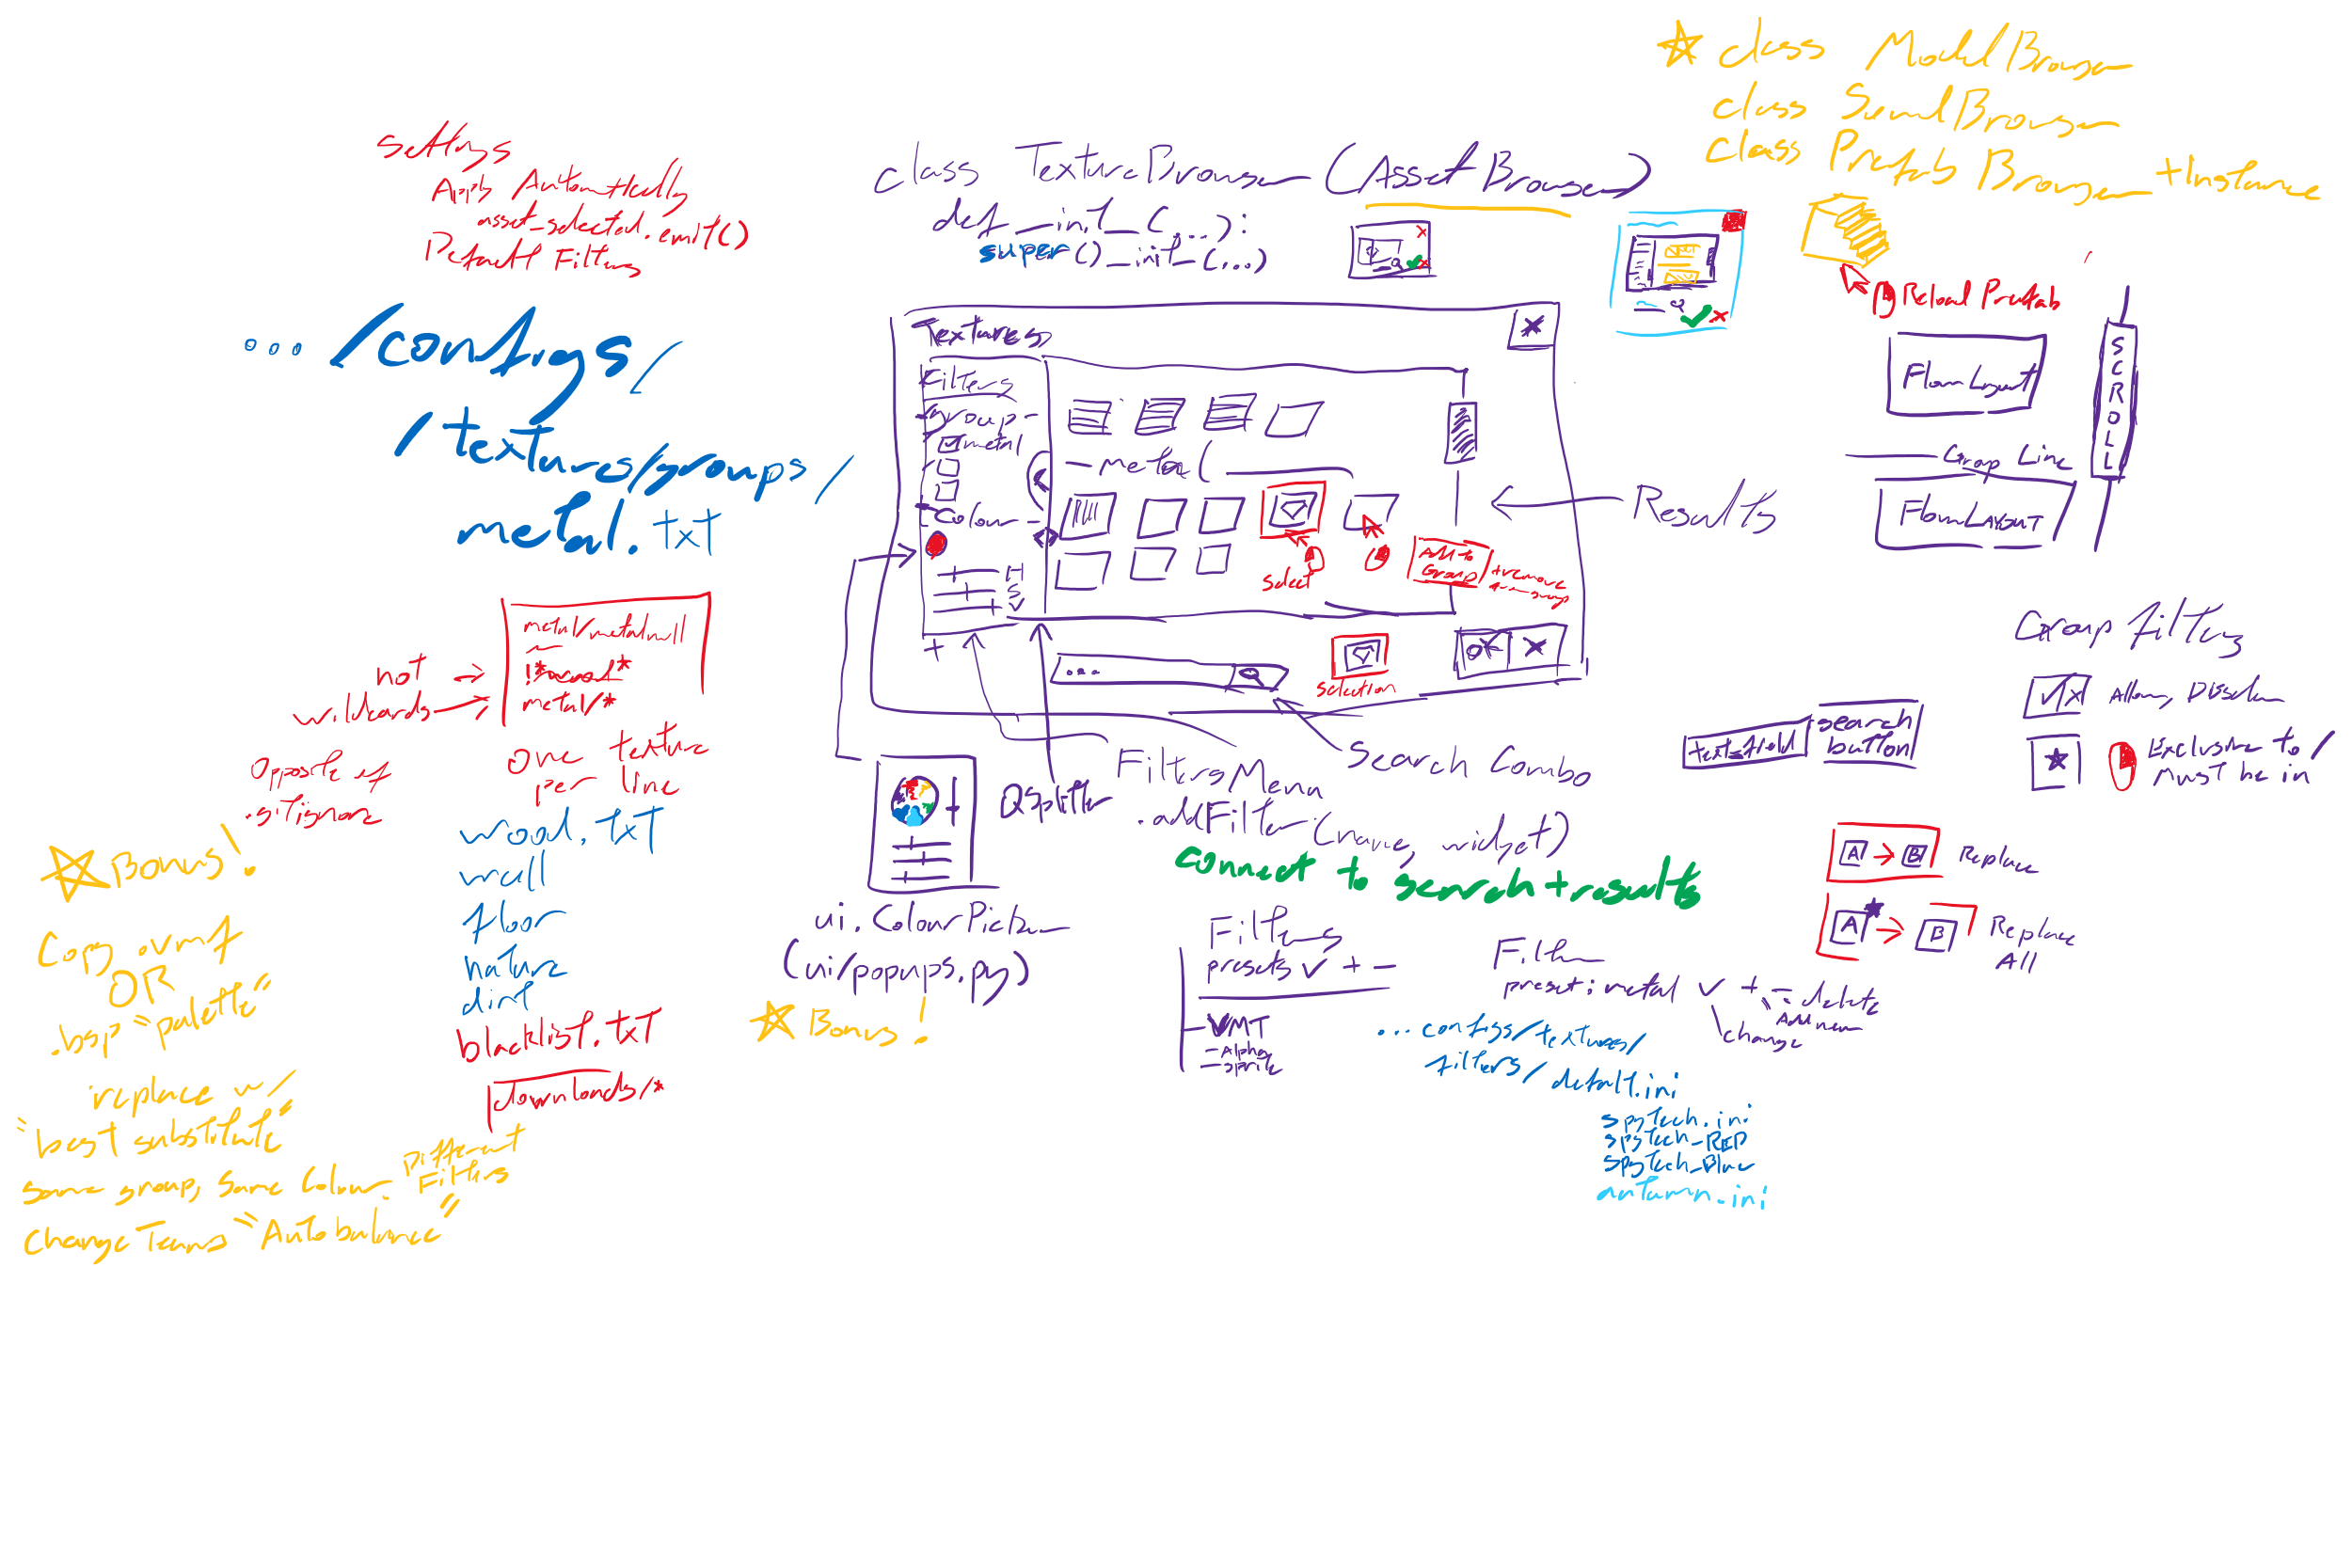 settings
Apply Automatically
asset_selected.emit()
Default Filters
.../configs/
/textures/groups/
metal.txt
metal/metalwall
!*wood*
metal/*
not
wildcards
Opposite of
.gitignore
one texture
per line
wood.txt
wall
floor
nature
dirt
blacklist.txt
downloads/*
Bonus!
Copy .vmf
OR
.bsp "palette"
replace w/
"best substitute"
same group, same colour.
Different
Filters
Change Teams "Autobalance"
class TextureBrowser (AssetBrowser)
def __init__(...):
super()__init__(...)
class ModelBrowser
class SoundBrowser
class Prefab Browser +Instance
Reload Prefab
Textures
Filters
-group-
metal
-Colour-
H
S
V
+
-metal
select
Add to
Group
+remove
...
selection
OK
Results
Search Combo
FiltersMenu
.addFilter(name, widget)
connect to search+results
QSplitter
ui.ColourPicker
(ui/popups.py)
Bonus!
Filters
presets v + -
VMT
-Alpha
-sprite
Filter
preset: metal v + -
delete
Add new
change
...configs/textures/
filters/default.ini
spytech.ini
spytech_RED
spytech_Blue
autumn.ini
FlowLayout
Group Line
FlowLAYOUT
SCROLL
Group filters
Allow, Disallow
Exclusive to/
Must be in
text_field
search
button
A
B
Replace
A
B
Replace
All